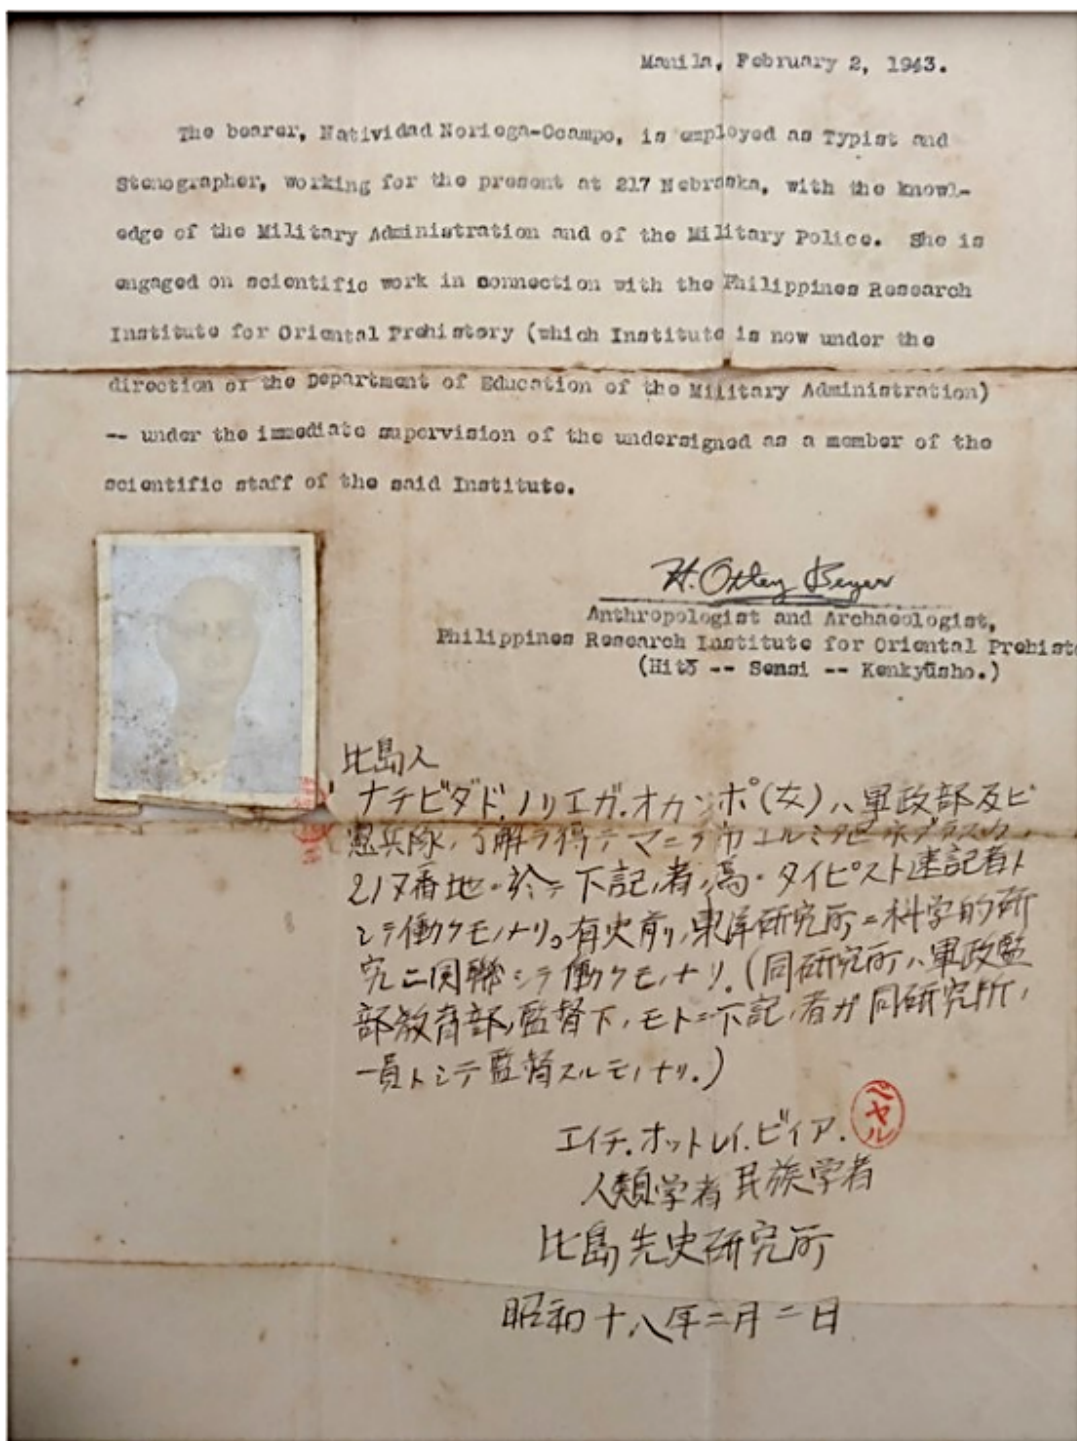 Manila, February 2, 1943.
The bearer, Natividad Noriega-Ocampo, is employed as Typist and
Stenographer, working for the present at 217 Nebraska, with the knowl-
edge of the Military Administration and of the Military Police. She is
engaged on scientific work in connection with the Philippines Research
Institute for Oriental Prehistory (which Institute is now under the
direction of the Department of Education of the Military Administration)
-- under the immediate supervision of the undersigned as a member of the
scientific staff of the said Institute.
H. Otley Beyer
Anthropologist and Archaeologist,
Philippines Research Institute for Oriental Prehisto
(Hitō -- Sensi -- Kenkyūsho.)
比島人
ナチビダド.ノリエガ.オカンポ(女)ハ軍政部及ビ
憲兵隊ノ了解ヲ得テマニラ市エルミタ区ネブラスカ
217番地ニ於テ下記ノ者ノ為ニタイピスト速記者ト
シテ働クモノナリ。有史前ノ東洋研究所ニ科学的研
究ニ関聯シテ働クモノナリ.(同研究所ハ軍政監
部教育部ノ監督下ノモトニ下記ノ者ガ同研究所ノ
一員トシテ監督スルモノナリ.)
エイチ.オットレイ.ビイア.
ベヤル
人類学者 民族学者
比島先史研究所
昭和十八年二月二日